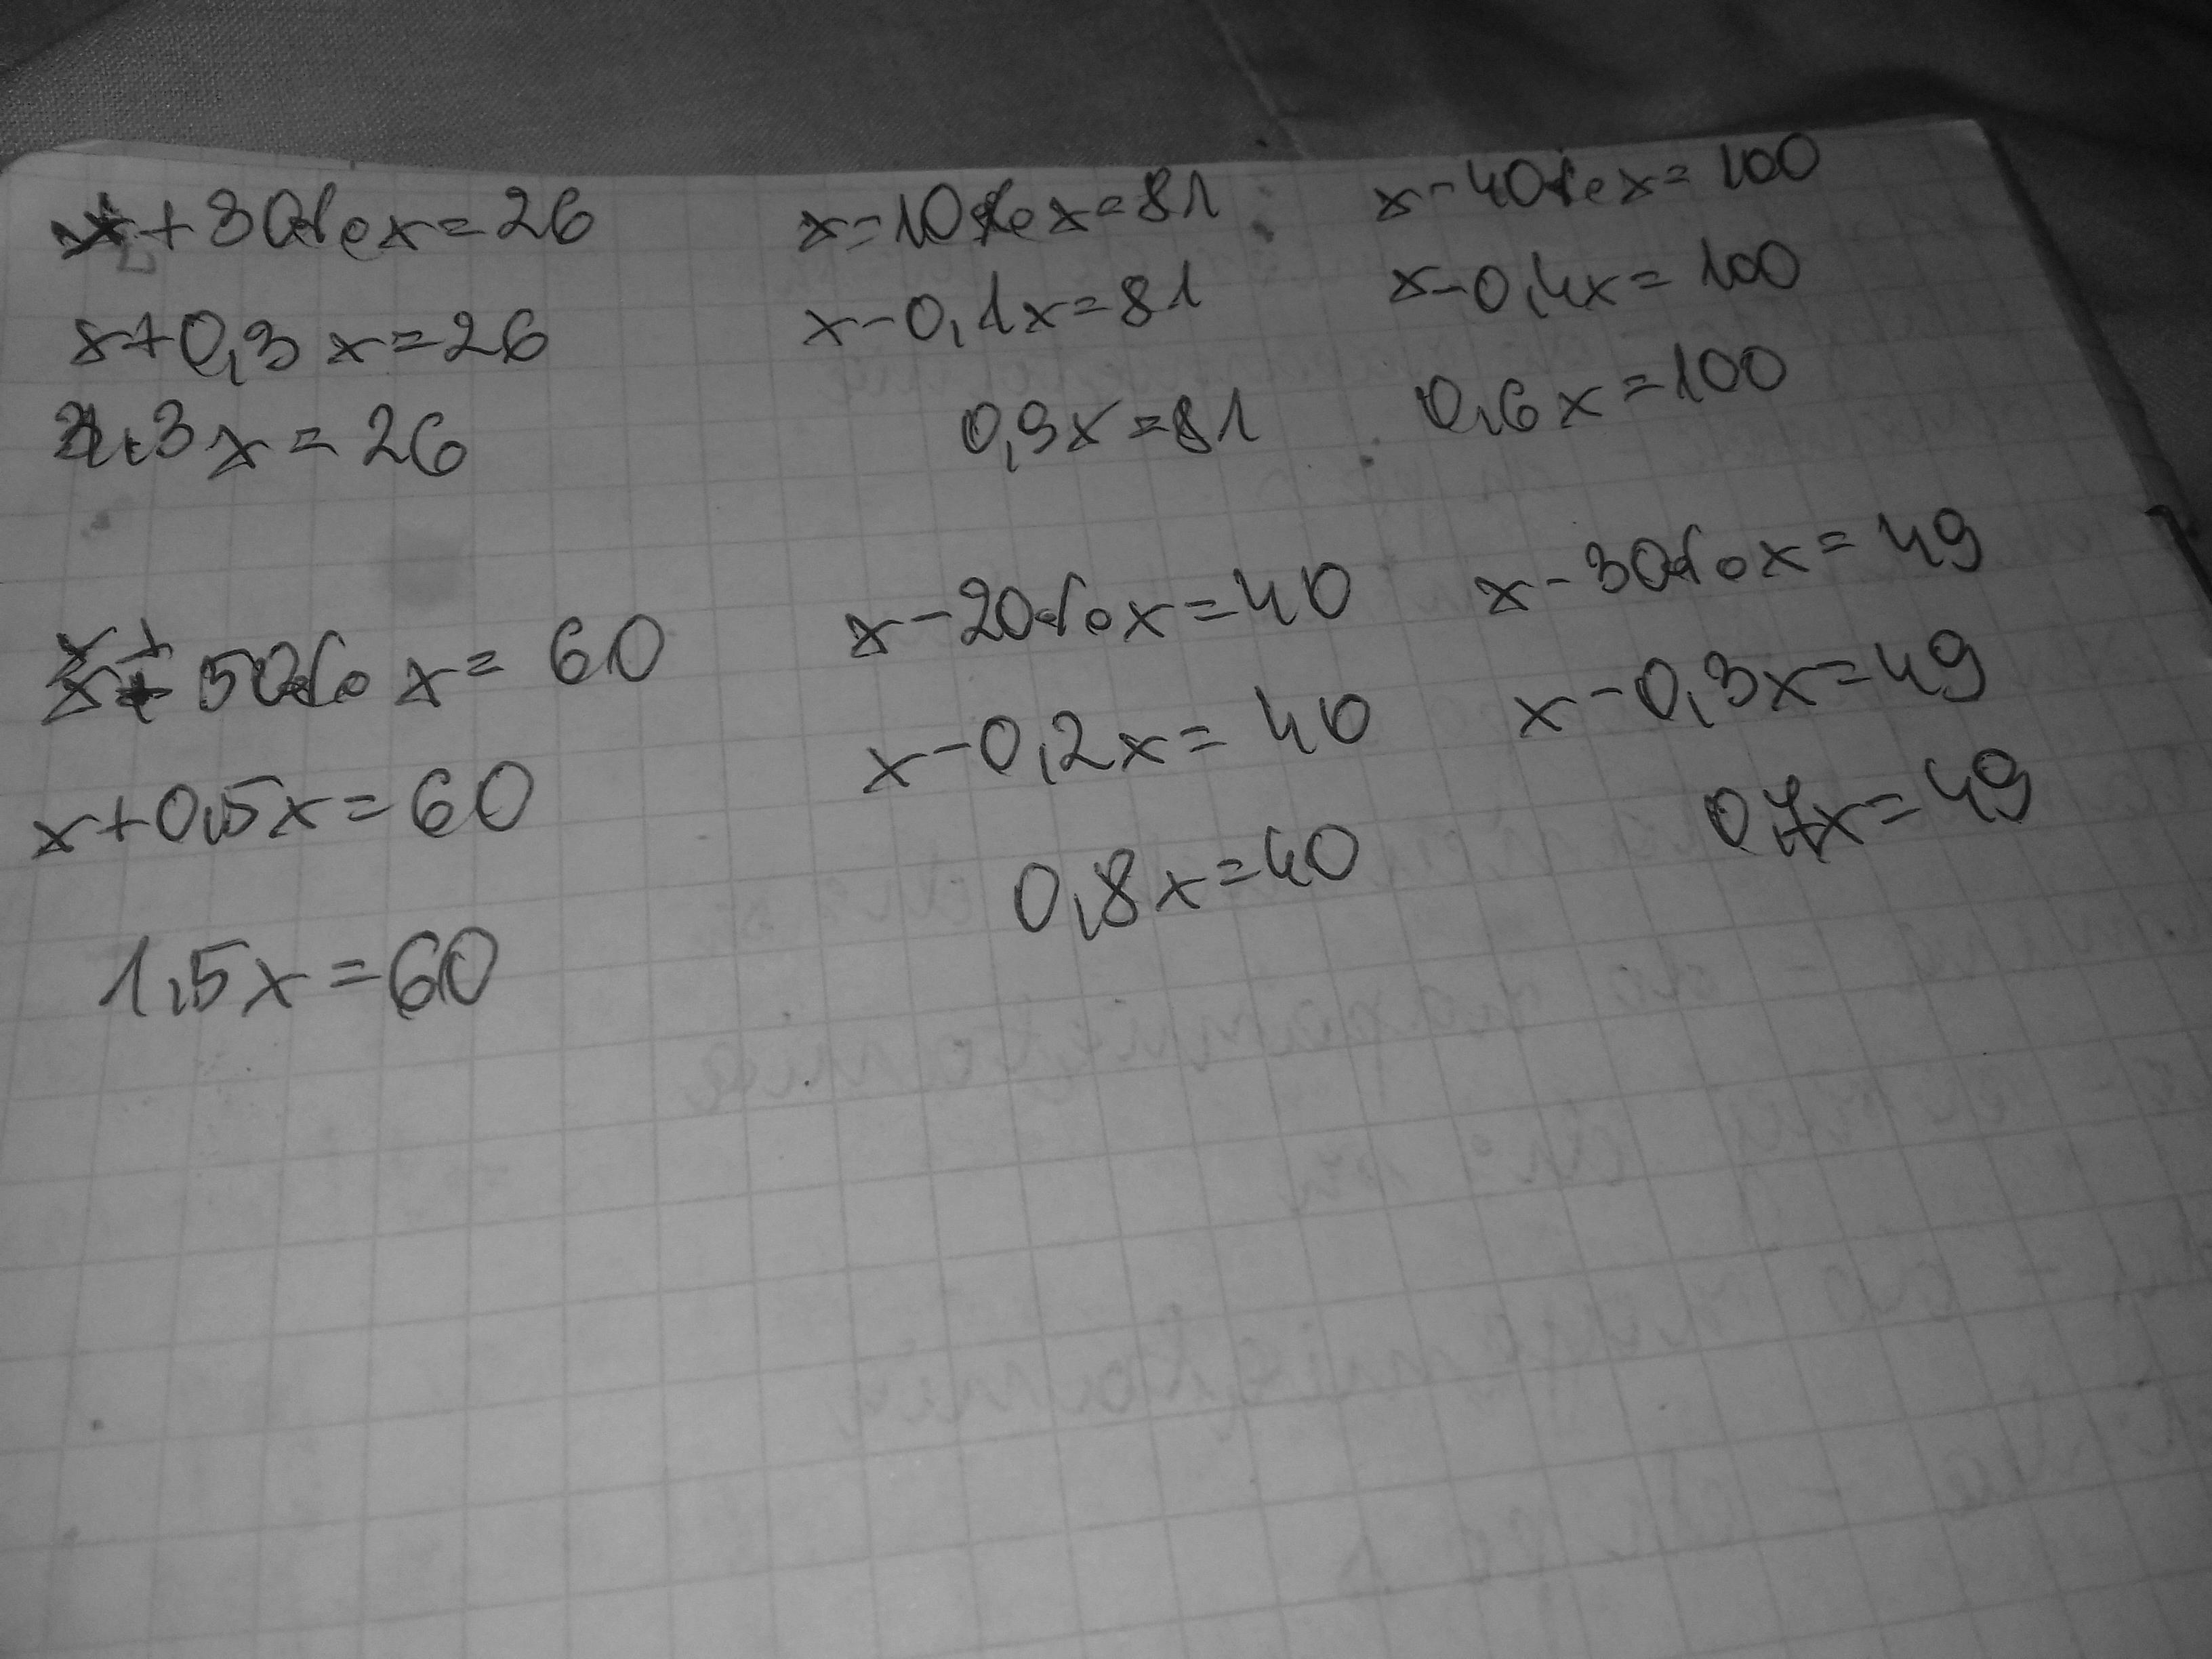 x + 30% x = 26
x + 0,3 x = 26
1,3 x = 26
x - 10% x = 81
x - 0,1x = 81
0,9x = 81
x - 40% x = 100
x - 0,4x = 100
0,6x = 100
x + 50% x = 60
x + 0,5x = 60
1,5x = 60
x - 20% x = 40
x - 0,2x = 40
0,8x = 40
x - 30% x = 49
x - 0,3x = 49
0,7x = 49